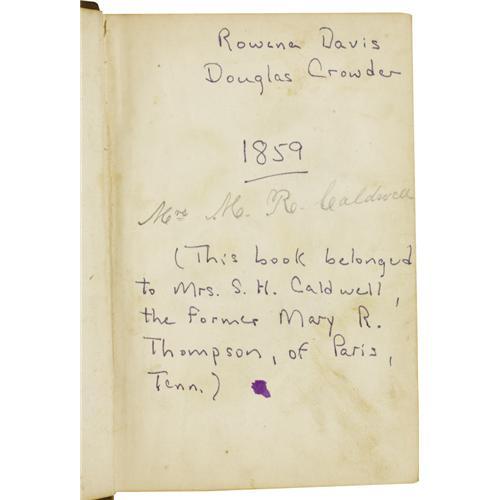 Rowena Davis
Douglas Crowder
1859
Mrs M. R. Caldwell
(This book belonged
to Mrs. S. H. Caldwell,
the former Mary R.
Thompson, of Paris,
Tenn.)